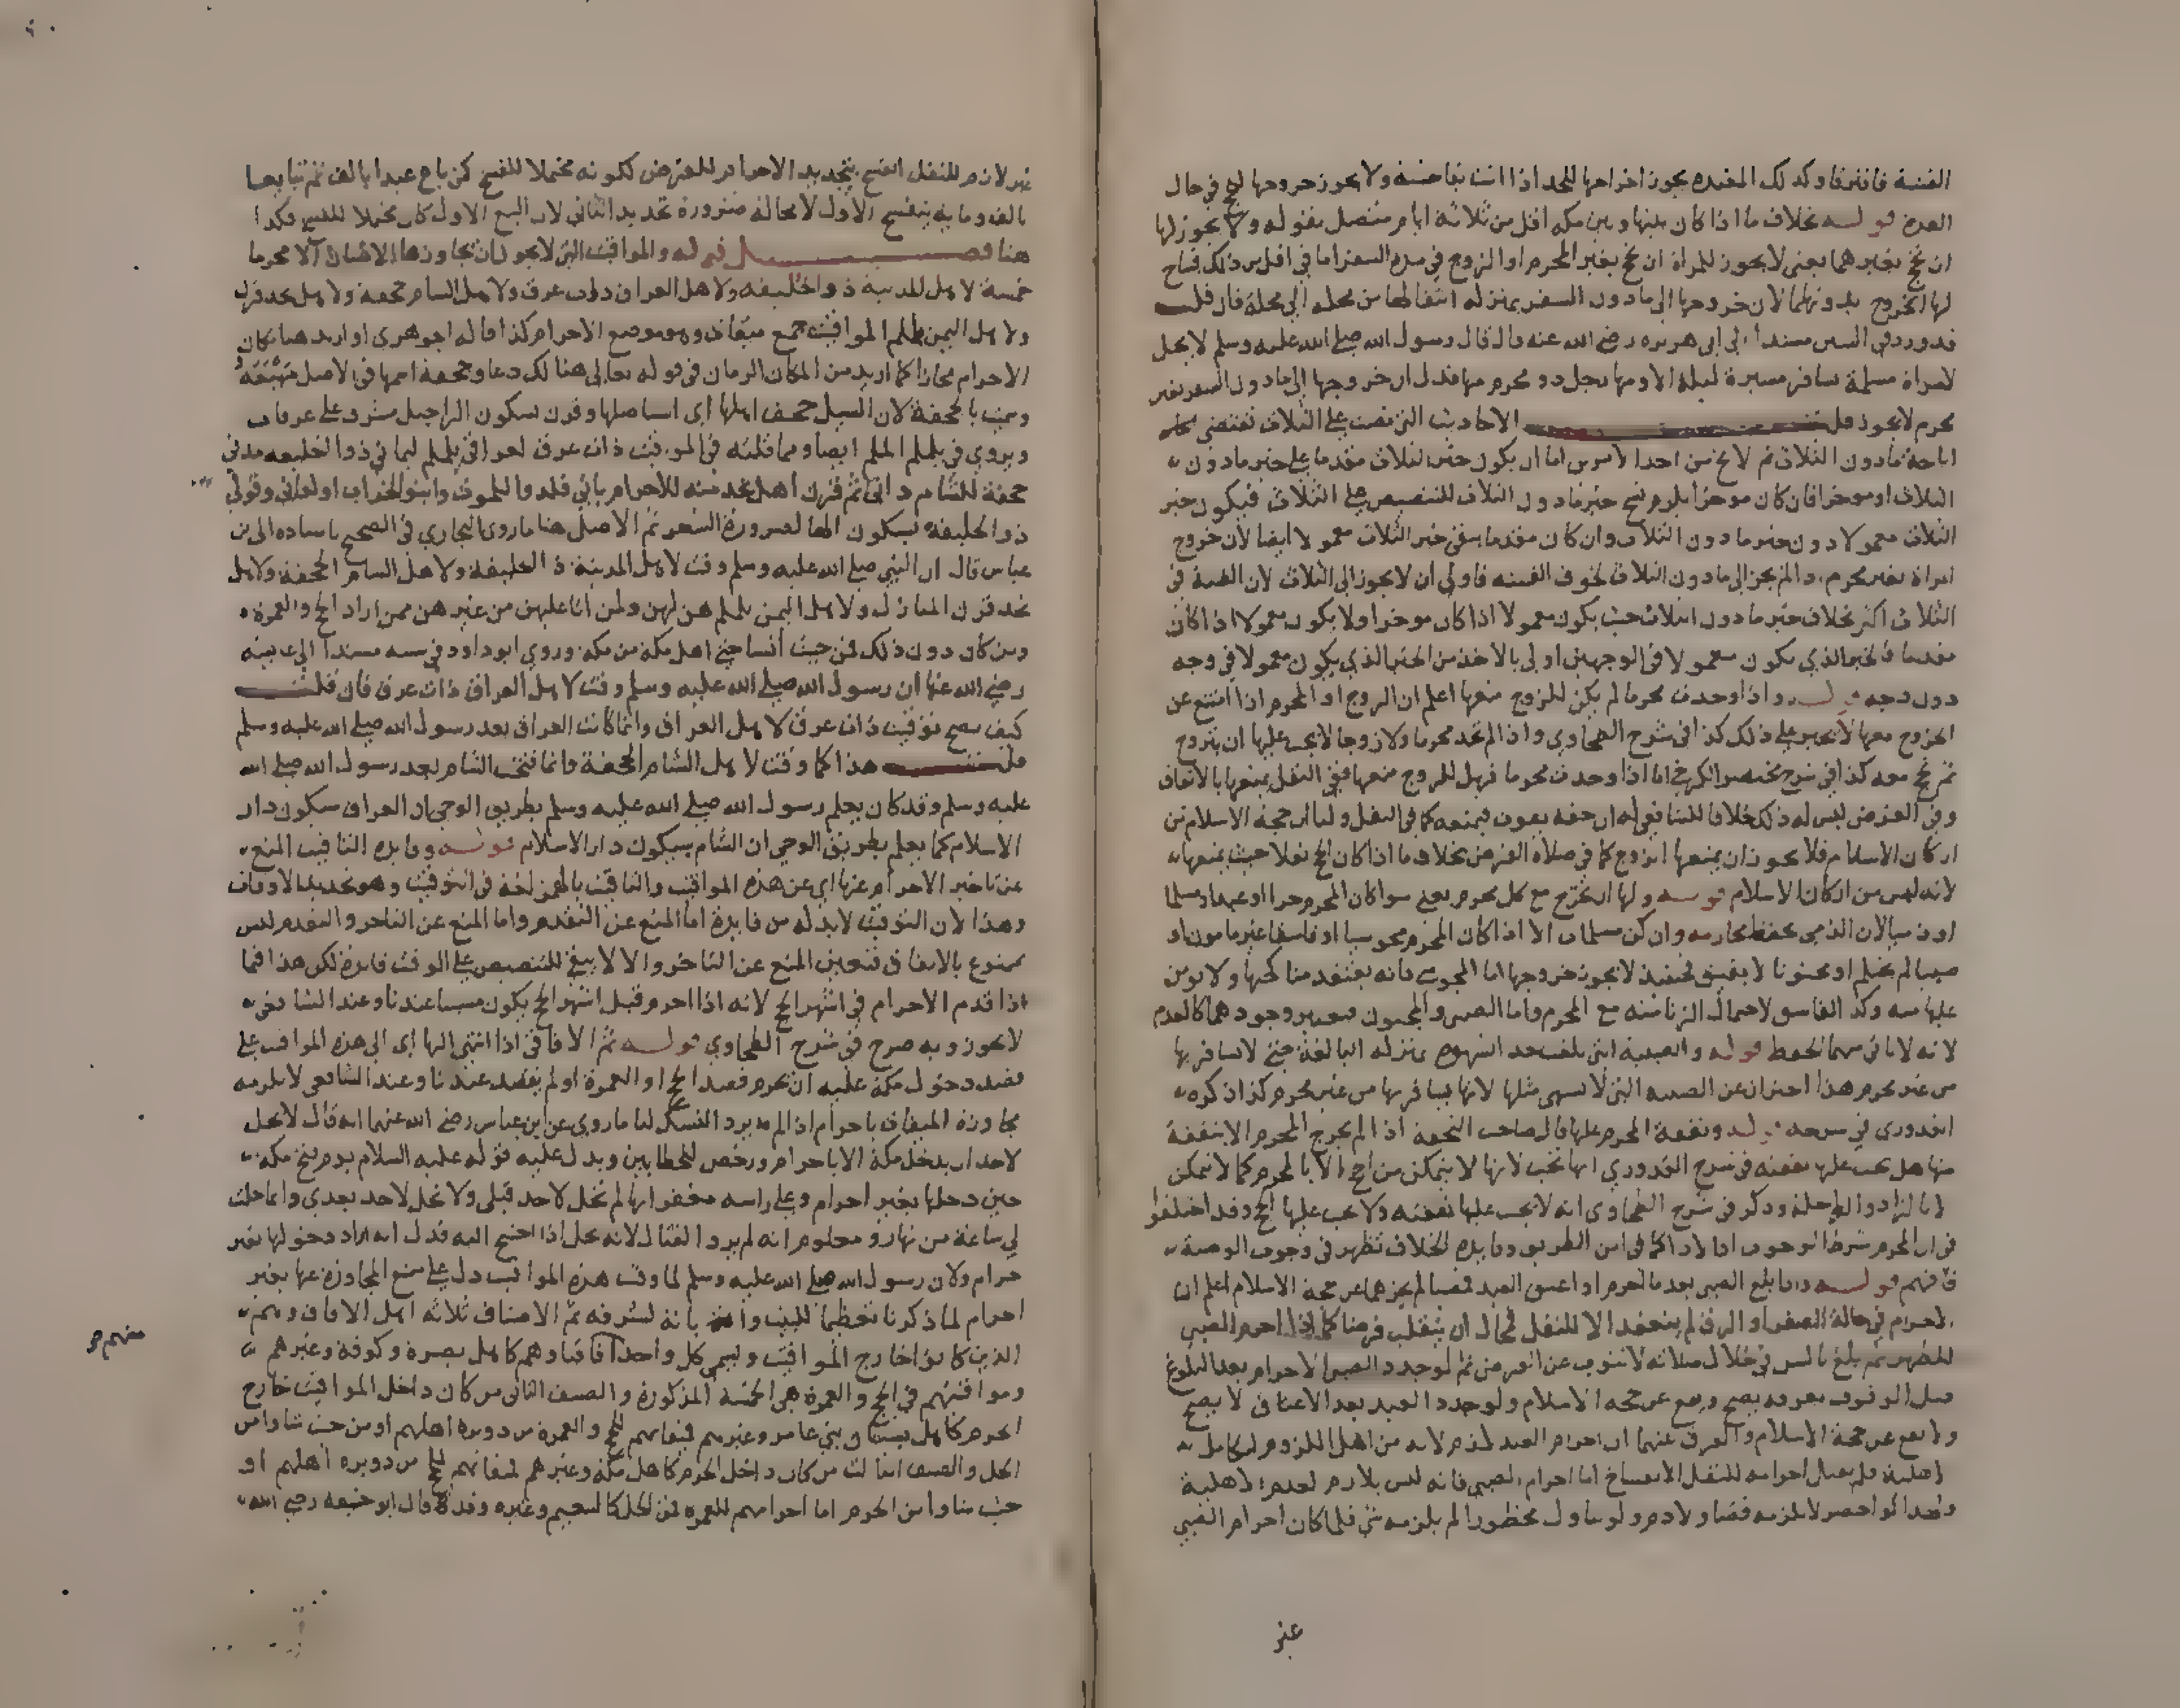 الفتنة فافترقا وكذلك المعتدة يجوز اخراجها للحد اذا اتت بفاحشة ولا يجوز خروجها للحج في حال
العدة قوله بخلاف ما اذا كان بينها وبين مكة اقل من ثلاثة ايام متصل بقوله ولا يجوز لها
ان تحج بغيرهما يعني لا يجوز للمراة ان تحج بغير المحرم او الزوج في مدة السفر اما في اقل من ذلك فيباح
لها الخروج بدونهما لان خروجها الى ما دون السفر بمنزلة انتقالها من محلة الى محلة فان قلت
قد ورد في السنن مسندا الى ابي هريرة رضي الله عنه قال قال رسول الله صلى الله عليه وسلم لا يحل
لامراة مسلمة تسافر مسيرة ليلة الا ومعها رجل ذو محرم منها فدل ان خروجها الى ما دون السفر بغير
محرم لا يجوز قلت الاحاديث التي نصت على الثلاث تقتضي
اباحة ما دون الثلاث ثم لا يخ من احد الامرين اما ان يكون خبر الثلاث مقدما على خبر ما دون
الثلاث او موخرا فان كان موخرا يلزم نسخ خبر ما دون الثلاث للتنصيص على الثلاث فيكون خبر
الثلاث معمولا دون خبر ما دون الثلاث وان كان مقدما يبقى خبر الثلاث معمولا ايضا لان خروج
امراة بغير محرم اذا لم يجز الى ما دون الثلاث لخوف الفتنة فاولى ان لا يجوز الى الثلاث لان الفتنة في
الثلاث اكثر بخلاف خبر ما دون الثلاث حيث يكون معمولا اذا كان موخرا ولا يكون معمولا اذا كان
مقدما فالخبر الذي يكون معمولا في الوجهين اولى بالاخذ من الخبر الذي يكون معمولا في وجه
دون وجه قوله واذا وجدت محرما لم يكن للزوج منعها اعلم ان الزوج او المحرم اذا امتنع عن
الخروج معها لا يجبر على ذلك كذا في شرح الطحاوي واذا لم تجد محرما ولا زوجا لا يجب عليها ان تتزوج
ثم تحج معه كذا في شرح مختصر الكرخي اما اذا وجدت محرما فهل للزوج منعها ففي النفل يمنعها بالاتفاق
وفي الفرض ليس له ذلك خلافا للشافعي له ان حقه يفوت فيمنعه كما في النفل ولنا ان حجة الاسلام من
اركان الاسلام فلا يجوز ان يمنعها الزوج كما في صلاة الفرض بخلاف ما اذا كان الحج نفلا حيث يمنعها
لانه ليس من اركان الاسلام قوله ولها ان تخرج مع كل محرم يعني سوا كان المحرم حرا او عبدا مسلما
او ذميا لان الذمي يحفظ محارمه وان كن مسلمات الا اذا كان المحرم مجوسيا او فاسقا غير مامون او
صبيا لم يحتلم او مجنونا لا يفيق فحينئذ لا يجوز خروجها اما المجوسي فانه يعتقد مناكحتها ولا يومن
عليها منه وكذا الفاسق لاحتمال الزنا منه مع المحرم واما الصبي والمجنون فيعتبر وجودهما كالعدم
لانه لا ياتي منهما الحفظ قوله والصبية التي بلغت حد الشهوة بمنزلة البالغة حتى لا يسافر بها
من غير محرم هذا احتراز عن الصبية التي لا تشتهى مثلها لانها يسافر بها من غير محرم كذا ذكره
القدوري في شرحه قوله ونفقة المحرم عليها قال صاحب التحفة اذا لم يخرج المحرم الا بنفقة
منها هل يجب عليها نفقته في شرح القدوري انها تجب لانها لا تتمكن من الحج الا بالمحرم كما لا تتمكن
الا بالزاد والراحلة وذكر في شرح الطحاوي انه لا يجب عليها نفقته ولا يجب عليها الحج وقد اختلفوا
في ان المحرم شرط الوجوب ام الاداء كما في امن الطريق وفايدة الخلاف تظهر في وجوب الوصية
فافهم قوله واذا بلغ الصبي بعد ما احرم او اعتق العبد فمضيا لم يجزهما عن حجة الاسلام اعلم ان
الاحرام في حالة الصغر او الرق لم ينعقد الا للنفل فمحال ان ينقلب فرضا كما اذا احرم الصبي
للظهر ثم بلغ بالسن في خلال صلاته لا تنوب عن الفرض ثم لو جدد الصبي الاحرام بعد البلوغ
قبل الوقوف بعرفة يصح ويقع عن حجة الاسلام ولو جدد العبد بعد الاعتاق لا يصح
ولا يقع عن حجة الاسلام والفرق بينهما ان احرام العبد لازم لانه من اهل اللزوم لكامل
اهليته فلم يقبل احرامه للنفل الانفساخ اما احرام الصبي فانه ليس بلازم لعدم الاهلية
ولهذا لو احصر لا يلزمه قضا ولا دم ولو تناول محظورا لم يلزمه شي فلما كان احرام الصبي
غير
غير لازم للنفل انفسخ بتجديد الاحرام للفرض لكونه محتملا للفسخ كمن باع عبدا بالف ثم تبايعا
بالف وماية ينفسخ الاول لا محالة ضرورة تجديد الثاني لان البيع الاول كان محتملا للفسخ فكذا
هنا فصل قوله والمواقيت التي لا يجوز ان يجاوزها الانسان الا محرما
خمسة لاهل المدينة ذو الحليفة ولاهل العراق ذات عرق ولاهل الشام جحفة ولاهل نجد قرن
ولاهل اليمن يلملم المواقيت جمع ميقات وهو موضع الاحرام كذا قاله الجوهري او اريد هنا مكان
الاحرام مجازا كما اريد من المكان الزمان في قوله تعالى هنالك دعا وجحفة اسمها في الاصل مَهْيَعَة
وسميت بالجحفة لان السيل جحف اهلها اي استاصلها وقرن بسكون الرا جبل مشرف على عرفات
ويروى في يلملم الملم ايضا ومما قلته في المواقيت ذات عرق لعراقي يلملم ليماني ذو الحليفة مدني
جحفة للشام داني ثم قرن اهل نجد منه للاحرام باني فلذو الملموت وابنو الخراب او لفاني وقولي
ذو الحليفة بسكون الها لضرورة الشعر ثم الاصل هنا ما روى البخاري في الصحيح باسناده الى بن
عباس قال ان النبي صلى الله عليه وسلم وقت لاهل المدينة ذا الحليفة ولاهل الشام الجحفة ولاهل
نجد قرن المنازل ولاهل اليمن يلملم هن لهن ولمن اتى عليهن من غيرهن ممن اراد الحج والعمرة
ومن كان دون ذلك فمن حيث أنشا حتى اهل مكة من مكة وروى ابو داود في سننه مسندا الى عايشة
رضي الله عنها ان رسول الله صلى الله عليه وسلم وقت لاهل العراق ذات عرق فان قلت
كيف يصح توقيت ذات عرق لاهل العراق وانما كانت العراق بعد رسول الله صلى الله عليه وسلم
قلت هذا كما وقت لاهل الشام الجحفة وانما فتحت الشام بعد رسول الله صلى الله
عليه وسلم وقد كان يعلم رسول الله صلى الله عليه وسلم بطريق الوحي ان العراق سيكون دار
الاسلام كما يعلم بطريق الوحي ان الشام سيكون دار الاسلام قوله وفايدة التاقيت المنع
عن تاخير الاحرام عنها اي عن هذه المواقيت والتاقيت بالهمز لغة في التوقيت وهو تحديد الاوقات
وهذا لان التوقيت لا بد له من فايدة اما المنع عن التقدم واما المنع عن التاخر والتقدم ليس
بممنوع بالاتفاق فتعين المنع عن التاخر والا لا يبقى للتنصيص على الوقت فايدة لكن هذا فيما
اذا قدم الاحرام في اشهر الحج لانه اذا احرم قبل اشهر الحج يكون مسيا عندنا وعند الشافعي
لا يجوز وبه صرح في شرح الطحاوي قوله ثم الافاقي اذا انتهى اليها اي الى هذه المواقيت على
قصد دخول مكة عليه ان يحرم قصد الحج او العمرة او لم يقصد عندنا وعند الشافعي لا يلزمه
مجاوزة الميقات باحرام اذا لم يرد النسك لنا ما روي عن ابن عباس رضي الله عنهما انه قال لا يحل
لاحد ان يدخل مكة الا باحرام ورخص للحطابين ويدل عليه قوله عليه السلام يوم فتح مكة
حين دخلها بغير احرام وعلى راسه مغفر انها لم تحل لاحد قبلي ولا تحل لاحد بعدي وانما حلت
لي ساعة من نهار ومعلوم انه لم يرد القتال لانه يحل اذا احتيج اليه فدل انه اراد دخولها بغير
احرام ولان رسول الله صلى الله عليه وسلم لما وقت هذه المواقيت دل على منع المجاوزة عنها بغير
احرام لما ذكرنا تعظيما للبيت وابانة لشرفه ثم الاصناف ثلاثة اهل الافاق وهم
الذين كانوا خارج المواقيت وليس كل واحد آفاقيا وهم كاهل بصرة وكوفة وغيرهم
ومواقيتهم في الحج والعمرة هي الخمسة المذكورة والصنف الثاني من كان داخل المواقيت خارج
الحرم كاهل بستان بني عامر وغيرهم فميقاتهم للحج والعمرة من دويرة اهلهم او من حيث شاوا من
الحل والصنف الثالث من كان داخل الحرم كاهل مكة وغيرهم فميقاتهم للحج من دويرة اهلهم او
حيث شاوا من الحرم اما احرامهم للعمرة فمن الحل كالتنعيم وغيره وقد قال ابو حنيفة رضي الله